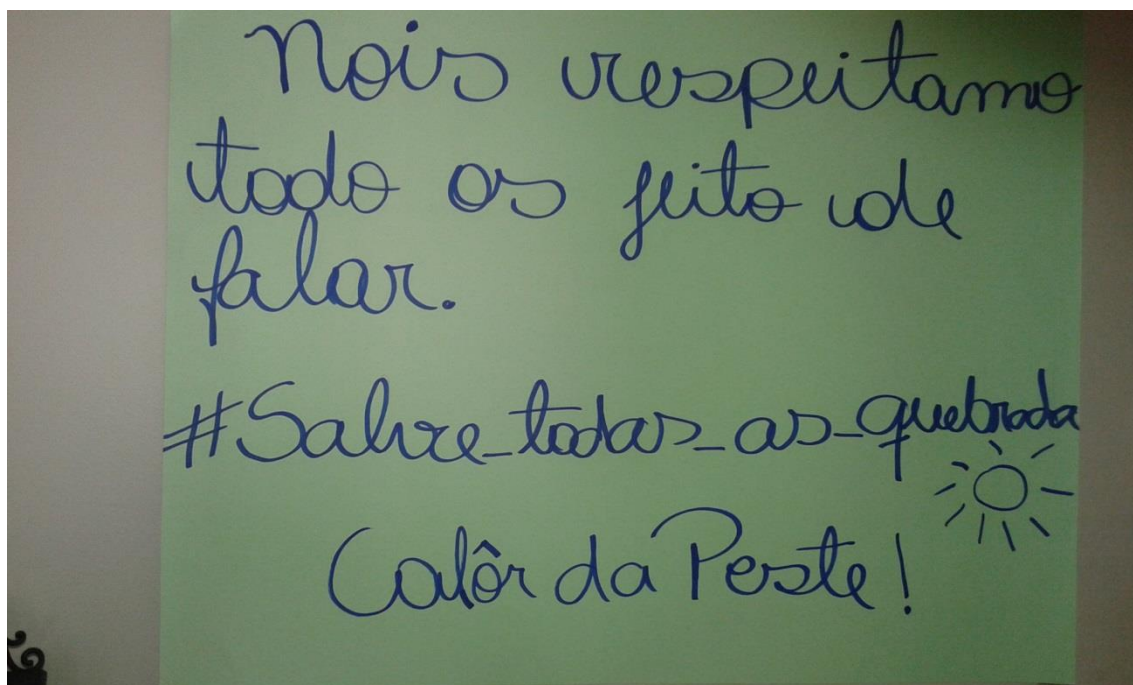 Nois respeitamo
todo os jeito de
falar.
#Salve_todas_as_quebrada
Calôr da Peste!